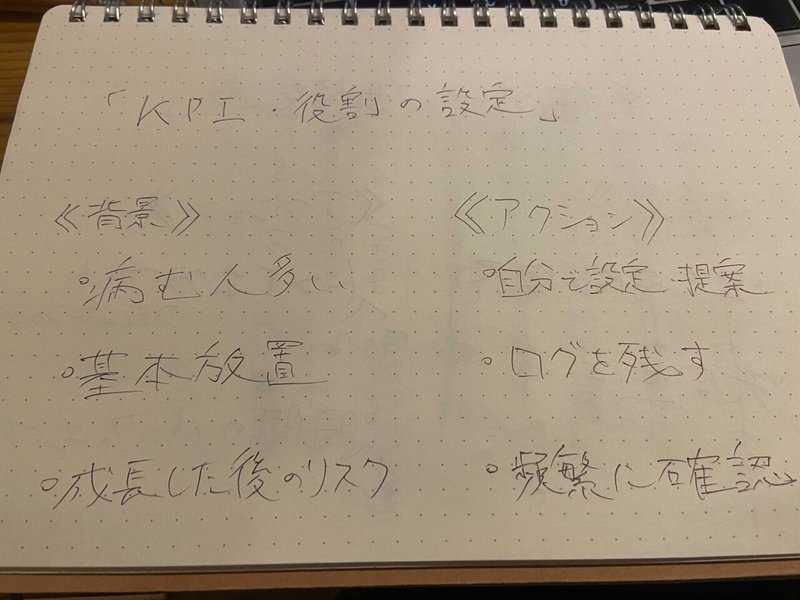 「KPI・役割の設定」
《背景》
○病む人多い
○基本放置
○成長した後のリスク
《アクション》
○自分で設定・提案
○ログを残す
○頻繁に確認